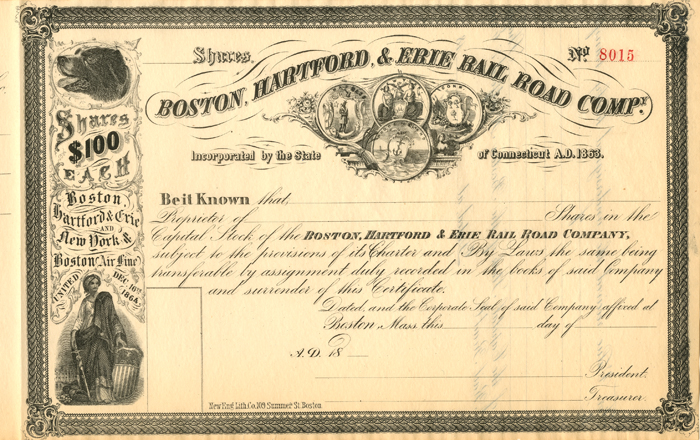 Shares.
No 8015
BOSTON, HARTFORD, & ERIE RAIL ROAD COMPY.
Incorporated by the State of Connecticut A.D. 1863.
Shares
$100
EACH
Boston
Hartford & Erie
AND
New York &
Boston Air Line
UNITED DEC. 10TH 1864
Be it Known that
Proprietor of Shares in the
Capital Stock of the BOSTON, HARTFORD & ERIE RAIL ROAD COMPANY,
subject to the provisions of its Charter and By Laws the same being
transferable by assignment duly recorded in the books of said Company
and surrender of this Certificate.
Dated, and the Corporate Seal of said Company affixed at
Boston Mass this day of
A.D. 18
President.
Treasurer.
New Engd. Lith. Co. 109 Summer St. Boston